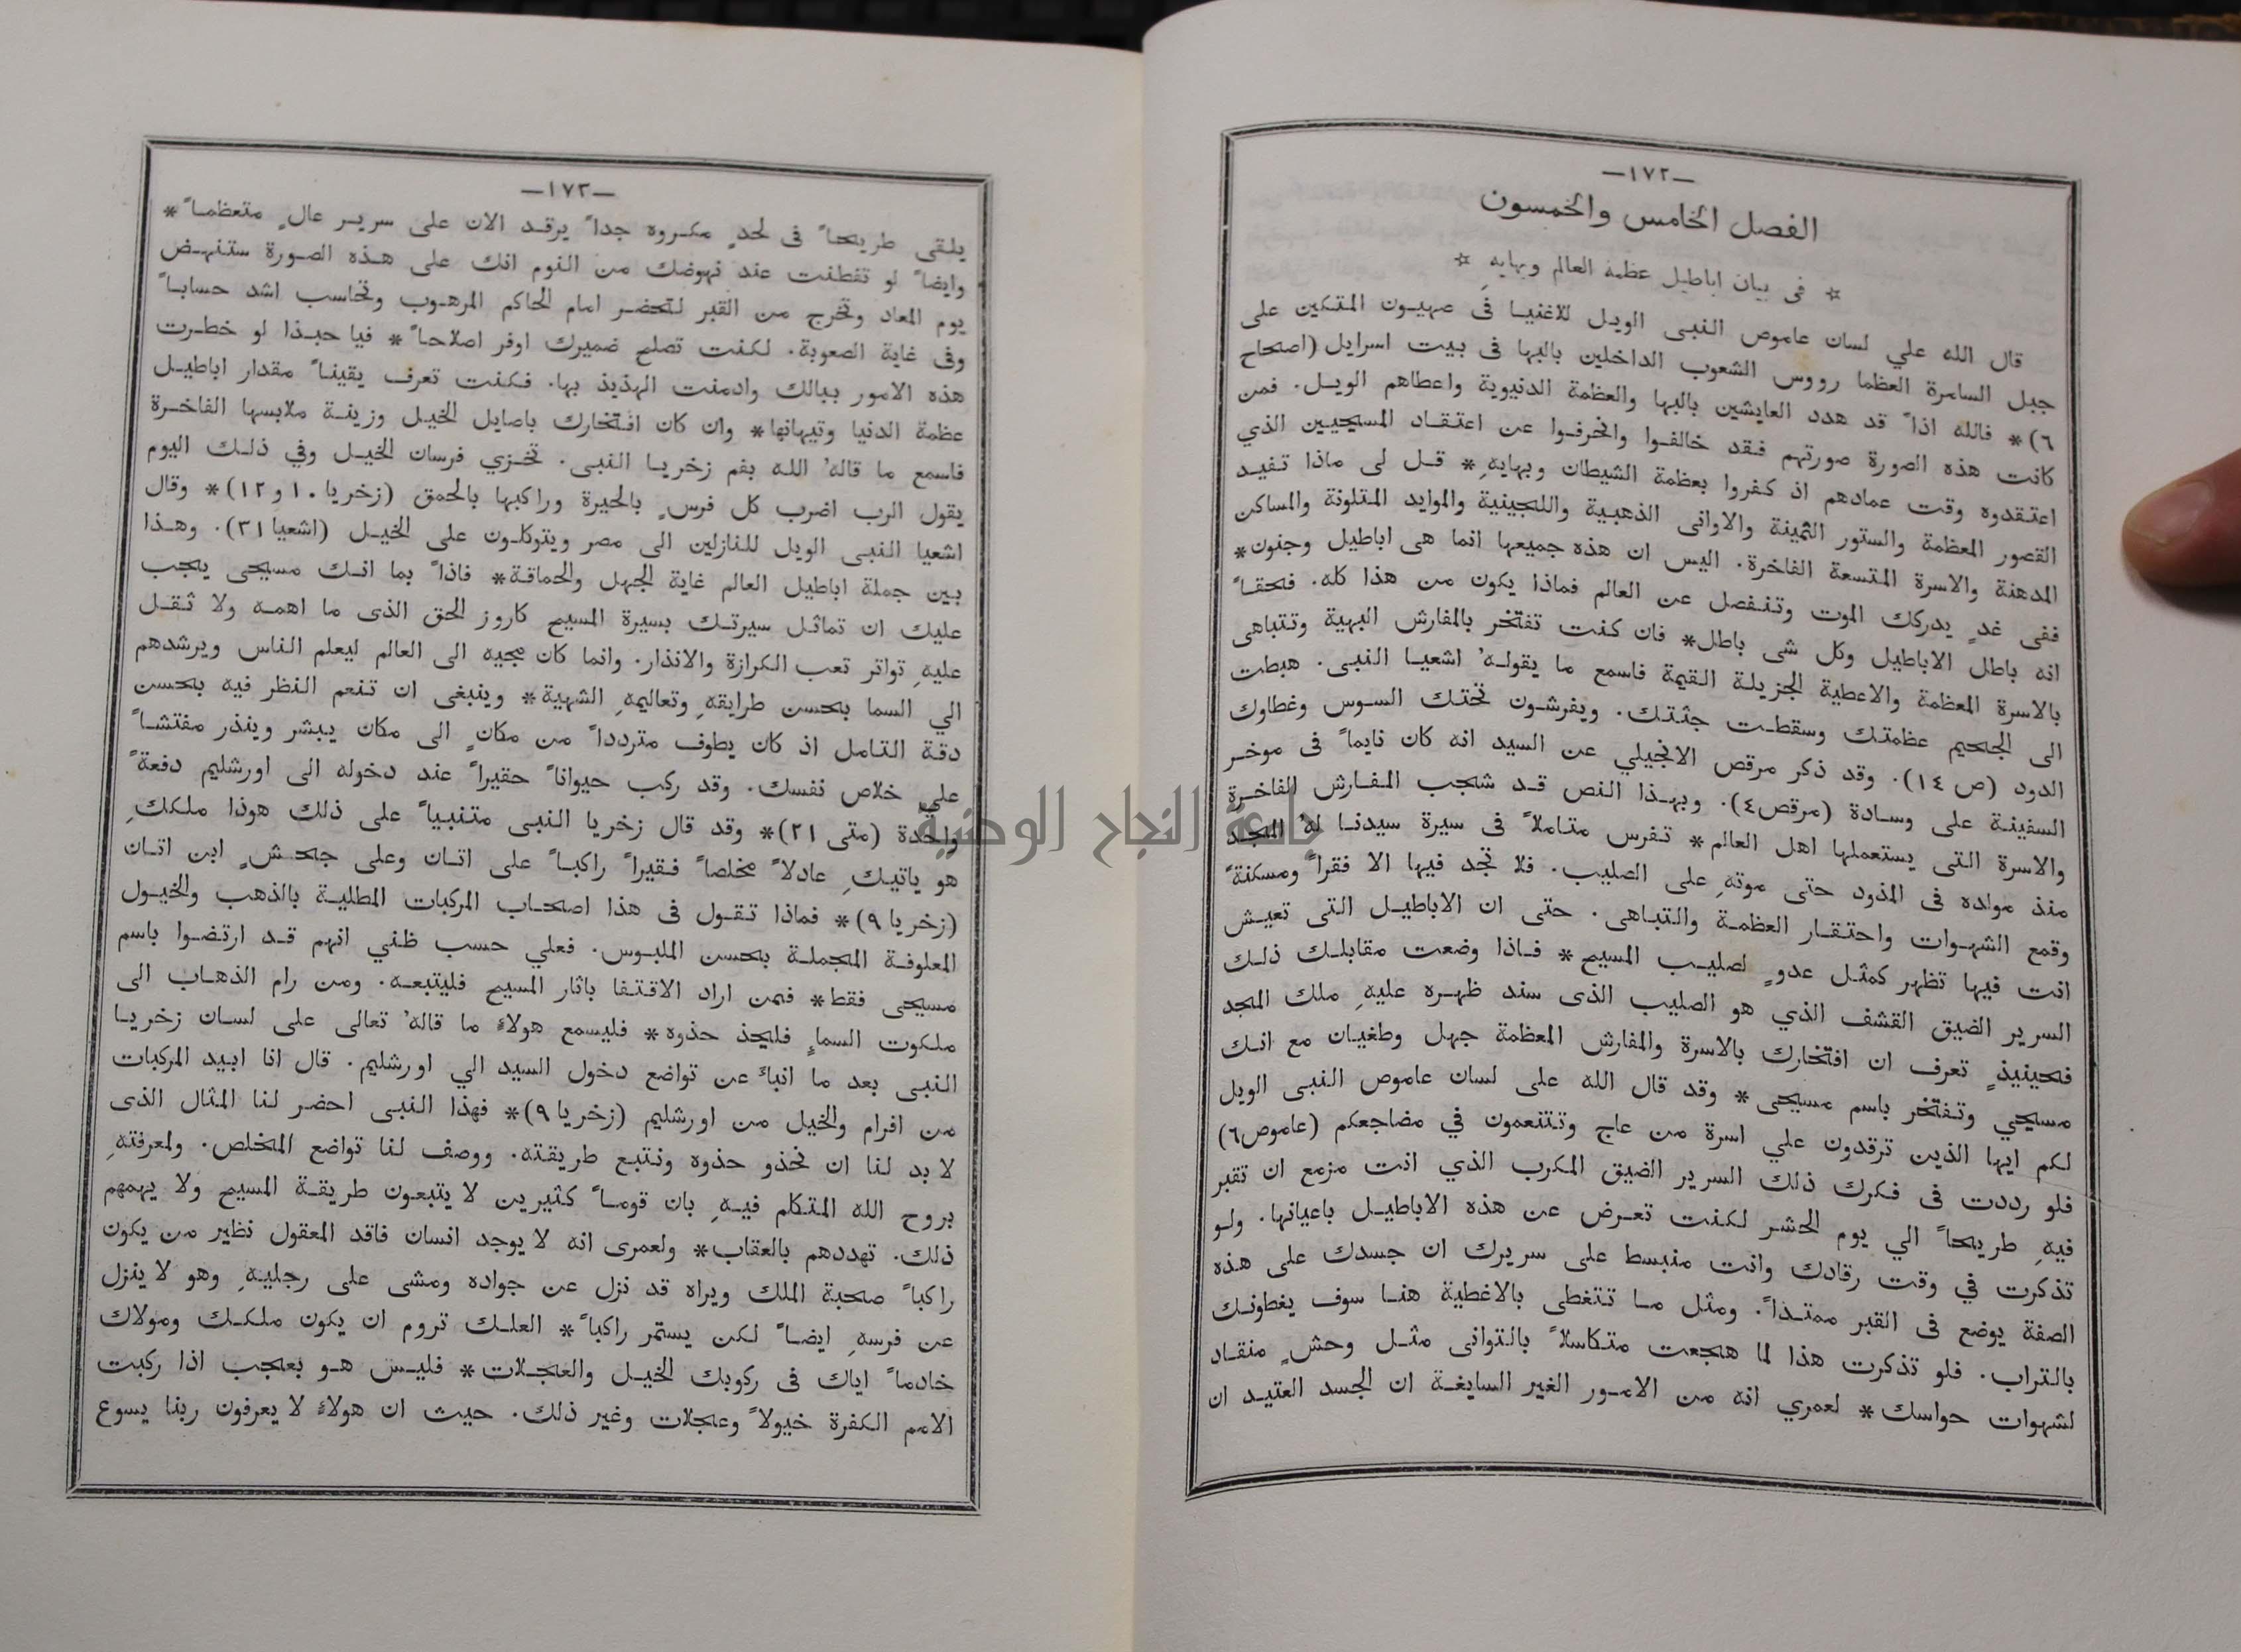 —١٧٢—
الفصل الخامس والخمسون
☆ فى بيان اباطيل عظمة العالم وبهايهِ ☆
قال الله علي لسان عاموص النبى الويل للاغنيا فى صهيون المتكين على
جبل السامرة العظما رووس الشعوب الداخلين بالبها فى بيت اسرايل (اصحاح
٦)* فالله اذاً قد هدد العايشين بالبها والعظمة الدنيوية واعطاهم الويل. فمن
كانت هذه الصورة صورتهم فقد خالفوا وانحرفوا عن اعتقاد المسيحيين الذي
اعتقدوه وقت عمادهم اذ كفروا بعظمة الشيطان وبهايهِ* قل لى ماذا تفيد
القصور المعظمة والستور الثمينة والاوانى الذهبية واللجينية والموايد المتلونة والمساكن
المدهنة والاسرة المتسعة الفاخرة. اليس ان هذه جميعها انما هى اباطيل وجنون*
ففى غدٍ يدركك الموت وتنفصل عن العالم فماذا يكون من هذا كله. فحقاً
انه باطل الاباطيل وكل شى باطل* فان كنت تفتخر بالمفارش البهية وتتباهى
بالاسرة المعظمة والاعطية الجزيلة القيمة فاسمع ما يقوله' اشعيا النبى. هبطت
الى الجحيم عظمتك وسقطت جثتك. ويفرشون تحتك السوس وغطاوك
الدود (ص ١٤). وقد ذكر مرقص الانجيلي عن السيد انه كان نايماً فى موخر
السفينة على وسادة (مرقص٤). وبهذا النص قد شجب المفارش الفاخرة
والاسرة التى يستعملها اهل العالم* تفرس متاملاً فى سيرة سيدنا له' المجد
منذ مولده فى المذود حتى موتهِ على الصليب. فلا تجد فيها الا فقراً ومسكنةً
وقمع الشهوات واحتقار العظمة والتباهى. حتى ان الاباطيل التى تعيش
انت فيها تظهر كمثل عدوٍ لصليب المسيح* فاذا وضعت مقابلك ذلك
السرير الضيق القشف الذي هو الصليب الذى سند ظهره عليهِ ملك المجد
فحينيذٍ تعرف ان افتخارك بالاسرة والمفارش المعظمة جهل وطغيان مع انك
مسيحي وتفتخر باسم مسيحى* وقد قال الله على لسان عاموص النبى الويل
لكم ايها الذين ترقدون علي اسرة من عاج وتتنعمون في مضاجعكم (عاموص٦)
فلو رددت فى فكرك ذلك السرير الضيق المكرب الذي انت مزمع ان تقبر
فيهِ طريحاً الي يوم الحشر لكنت تعرض عن هذه الاباطيل باعيانها. ولو
تذكرت في وقت رقادك وانت منبسط على سريرك ان جسدك على هذه
الصفة يوضع فى القبر ممتداً. ومثل ما تتغطى بالاغطية هنا سوف يغطونك
بالتراب. فلو تذكرت هذا لما هجعت متكاسلاً بالتوانى مثل وحشٍ منقاد
لشهوات حواسك* لعمري انه من الامور الغير السايغة ان الجسد العتيد ان
—١٧٣—
يلقى طريحاً فى لحدٍ مكروه جداً يرقد الان على سرير عالٍ متعظماً*
وايضاً لو تفطنت عند نهوضك من النوم انك على هذه الصورة ستنهض
يوم المعاد وتخرج من القبر لتحضر امام الحاكم المرهوب وتحاسب اشد حساباً
وفى غاية الصعوبة. لكنت تصلح ضميرك اوفر اصلاحاً* فيا حبذا لو خطرت
هذه الامور ببالك وادمنت الهذيذ بها. فكنت تعرف يقيناً مقدار اباطيل
عظمة الدنيا وتيهانها* وان كان افتخارك باصايل الخيل وزينة ملابسها الفاخرة
فاسمع ما قاله' الله بفم زخريا النبى. تخزي فرسان الخيل وفي ذلك اليوم
يقول الرب اضرب كل فرسٍ بالحيرة وراكبها بالحمق (زخريا ١٠و١٢)* وقال
اشعيا النبى الويل للنازلين الى مصر ويتوكلون على الخيل (اشعيا٣١). وهذا
بين جملة اباطيل العالم غاية الجهل والحماقة* فاذاً بما انك مسيحى يجب
عليك ان تماثل سيرتك بسيرة المسيح كاروز الحق الذى ما اهمه ولا ثقل
عليهِ تواتر تعب الكرازة والانذار. وانما كان مجيه الى العالم ليعلم الناس ويرشدهم
الي السما بحسن طرايقهِ وتعاليمهِ الشهية* وينبغى ان تنعم النظر فيه بحسن
دقة التامل اذ كان يطوف متردداً من مكانٍ الى مكان يبشر وينذر مفتشاً
علي خلاص نفسك. وقد ركب حيواناً حقيراً عند دخوله الى اورشليم دفعةً
واحدة (متى ٢١)* وقد قال زخريا النبى متنبياً على ذلك هوذا ملككِ
هو ياتيكِ عادلاً مخلصاً فقيراً راكباً على اتان وعلى جحشٍ ابن اتان
(زخريا ٩)* فماذا تقول فى هذا اصحاب المركبات المطلية بالذهب والخيول
المعلوفة المتجملة بحسن الملبوس. فعلي حسب ظني انهم قد ارتضوا باسم
مسيحى فقط* فمن اراد الاقتفا باثار المسيح فليتبعه. ومن رام الذهاب الى
ملكوت السماءِ فليحذ حذوه* فليسمع هولاءِ ما قاله' تعالى على لسان زخريا
النبى بعد ما انباءَ عن تواضع دخول السيد الي اورشليم. قال انا ابيد المركبات
من افرام والخيل من اورشليم (زخريا ٩)* فهذا النبى احضر لنا المثال الذى
لا بد لنا ان نحذو حذوه ونتبع طريقته. ووصف لنا تواضع المخلص. ولمعرفتهِ
بروح الله المتكلم فيهِ بان قوماً كثيرين لا يتبعون طريقة المسيح ولا يهمهم
ذلك. تهددهم بالعقاب* ولعمرى انه لا يوجد انسان فاقد المعقول نظير من يكون
راكباً صحبة الملك ويراه قد نزل عن جواده ومشى على رجليهِ وهو لا ينزل
عن فرسهِ ايضاً لكن يستمر راكباً* العلك تروم ان يكون ملكك ومولاك
خادماً اياك فى ركوبك الخيل والعجلات* فليس هو بعجب اذا ركبت
الامم الكفرة خيولاً وعجلات وغير ذلك. حيث ان هولاءِ لا يعرفون ربنا يسوع
جامعة النجاح الوطنية